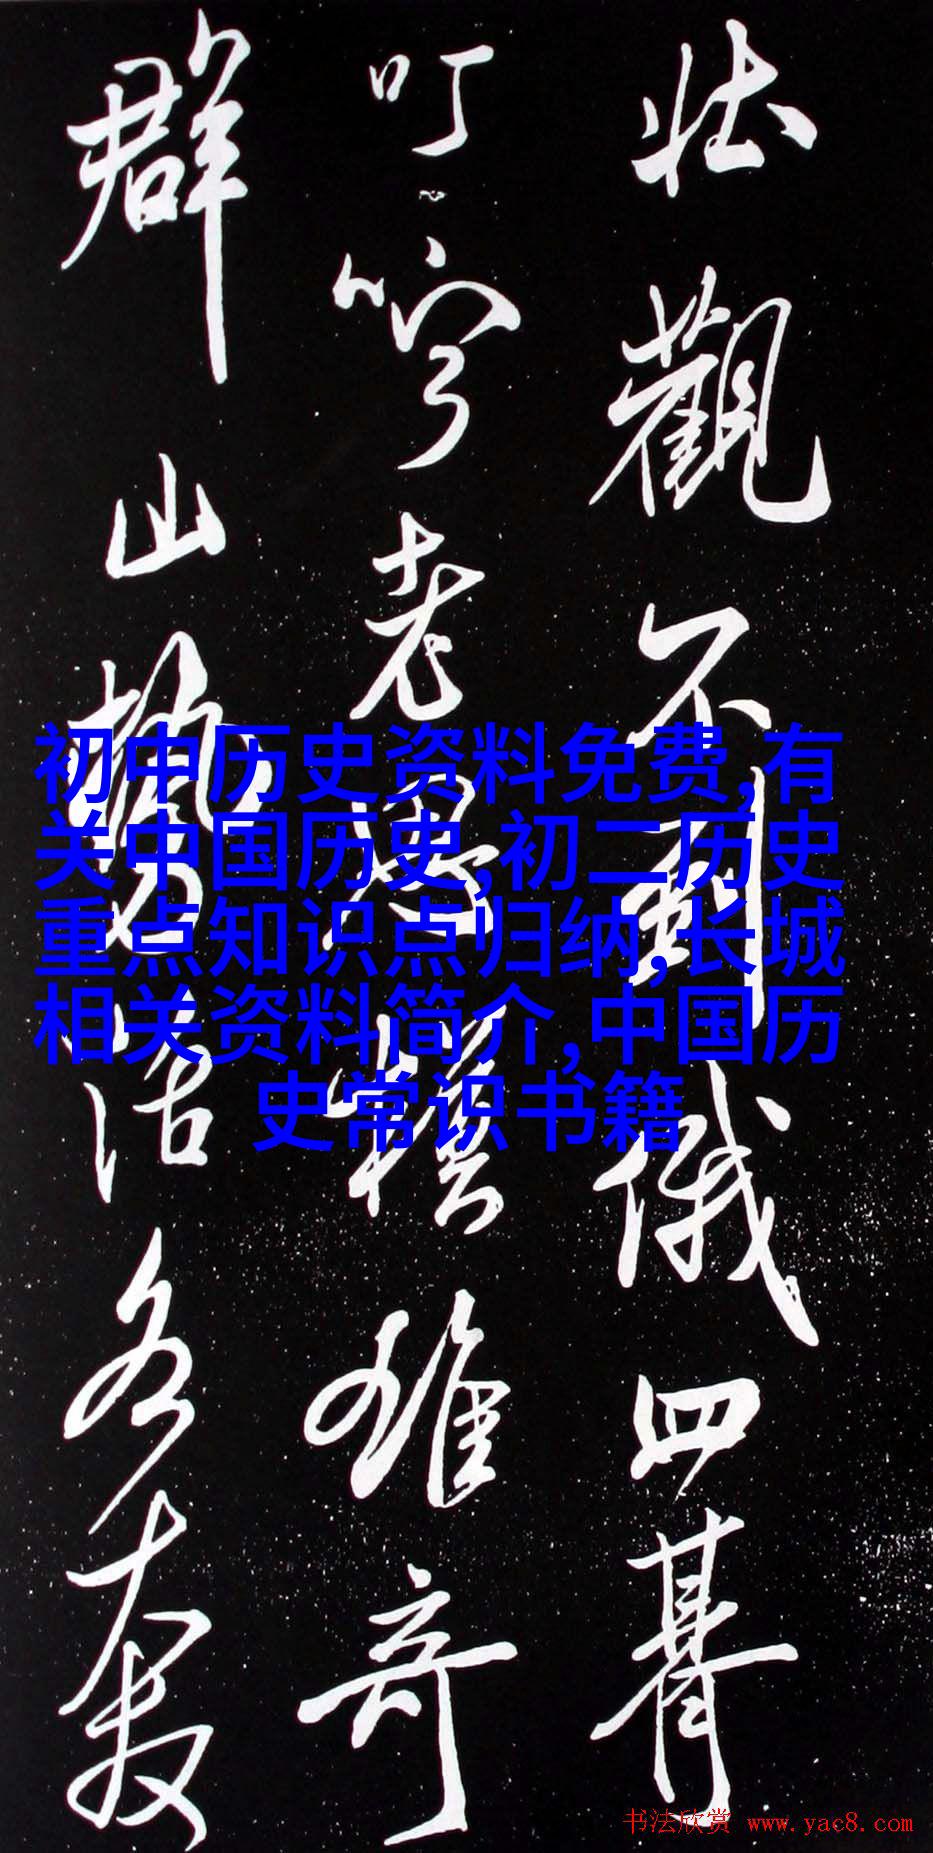 壮觀不到俄四
叮嚀老愚雄奇
群山勢活各
初中历史资料免费,有
关中国历史,初二历史
重点知识点归纳,长城
相关资料简介,中国历
史常识书籍
书法欣赏 www.yac8.com